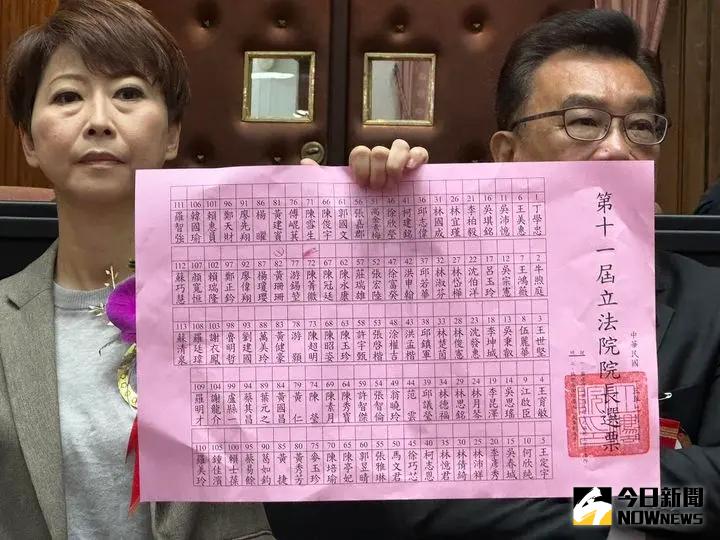 第十一屆立法院院長選票
中華民國
1 丁學忠
2 牛煦庭
3 王世堅
4 王育敏
5 王定宇
6 王美惠
7 王鴻薇
8 伍麗華
9 江啟臣
10 何欣純
11 吳沛憶
12 吳宗憲
13 吳秉叡
14 吳思瑤
15 吳春城
16 吳琪銘
17 呂玉玲
18 李坤城
19 李昆澤
20 李彥秀
21 李柏毅
22 沈伯洋
23 沈發惠
24 林月琴
25 林沛祥
26 林宜瑾
27 林岱樺
28 林俊憲
29 林思銘
30 林倩綺
31 林國成
32 林淑芬
33 林楚茵
34 林德福
35 林憶君
36 邱志偉
37 邱若華
38 邱鎮軍
39 邱議瑩
40 柯志恩
41 柯建銘
42 洪申翰
43 洪孟楷
44 范雲
45 徐巧芯
46 徐欣瑩
47 徐富癸
48 涂權吉
49 翁曉玲
50 馬文君
51 高金素梅
52 張宏陸
53 張啓楷
54 張智倫
55 張雅琳
56 張嘉郡
57 莊瑞雄
58 許宇甄
59 許智傑
60 郭昱晴
61 郭國文
62 陳永康
63 陳玉珍
64 陳秀寳
65 陳亭妃
66 陳俊宇
67 陳冠廷
68 陳昭姿
69 陳素月
70 陳培瑜
71 陳雪生
72 陳菁徽
73 陳超明
74 陳瑩
75 麥玉珍
76 傅崐萁
77 游錫堃
78 游顥
79 黃仁
80 黃秀芳
81 黃建賓
82 黃珊珊
83 黃健豪
84 黃國昌
85 黃捷
86 楊曜
87 楊瓊瓔
88 萬美玲
89 葉元之
90 葛如鈞
91 廖先翔
92 廖偉翔
93 劉建國
94 蔡其昌
95 蔡易餘
96 鄭天財
97 鄭正鈐
98 魯明哲
99 盧縣一
100 賴士葆
101 賴惠員
102 賴瑞隆
103 謝衣鳳
104 謝龍介
105 鍾佳濱
106 韓國瑜
107 顏寬恒
108 羅廷瑋
109 羅明才
110 羅美玲
111 羅智強
112 蘇巧慧
113 蘇清泉
今日新聞
NOWNEWS